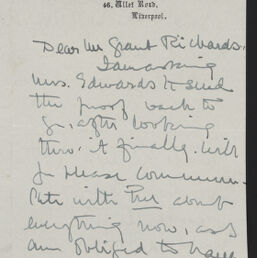 46, Ullet Road,
Liverpool.
Dear Mr Grant Richards.
I am asking
Mrs. Edwards to send
the proof back to
you, after looking
thro' it finally. Will
you please communi-
cate with her about
everything now, as I
am obliged to have